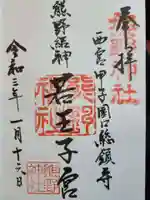 奉拝
西宮甲子園口総鎮守
熊野神社
若王子宮
熊野大神
令和三年一月十六日